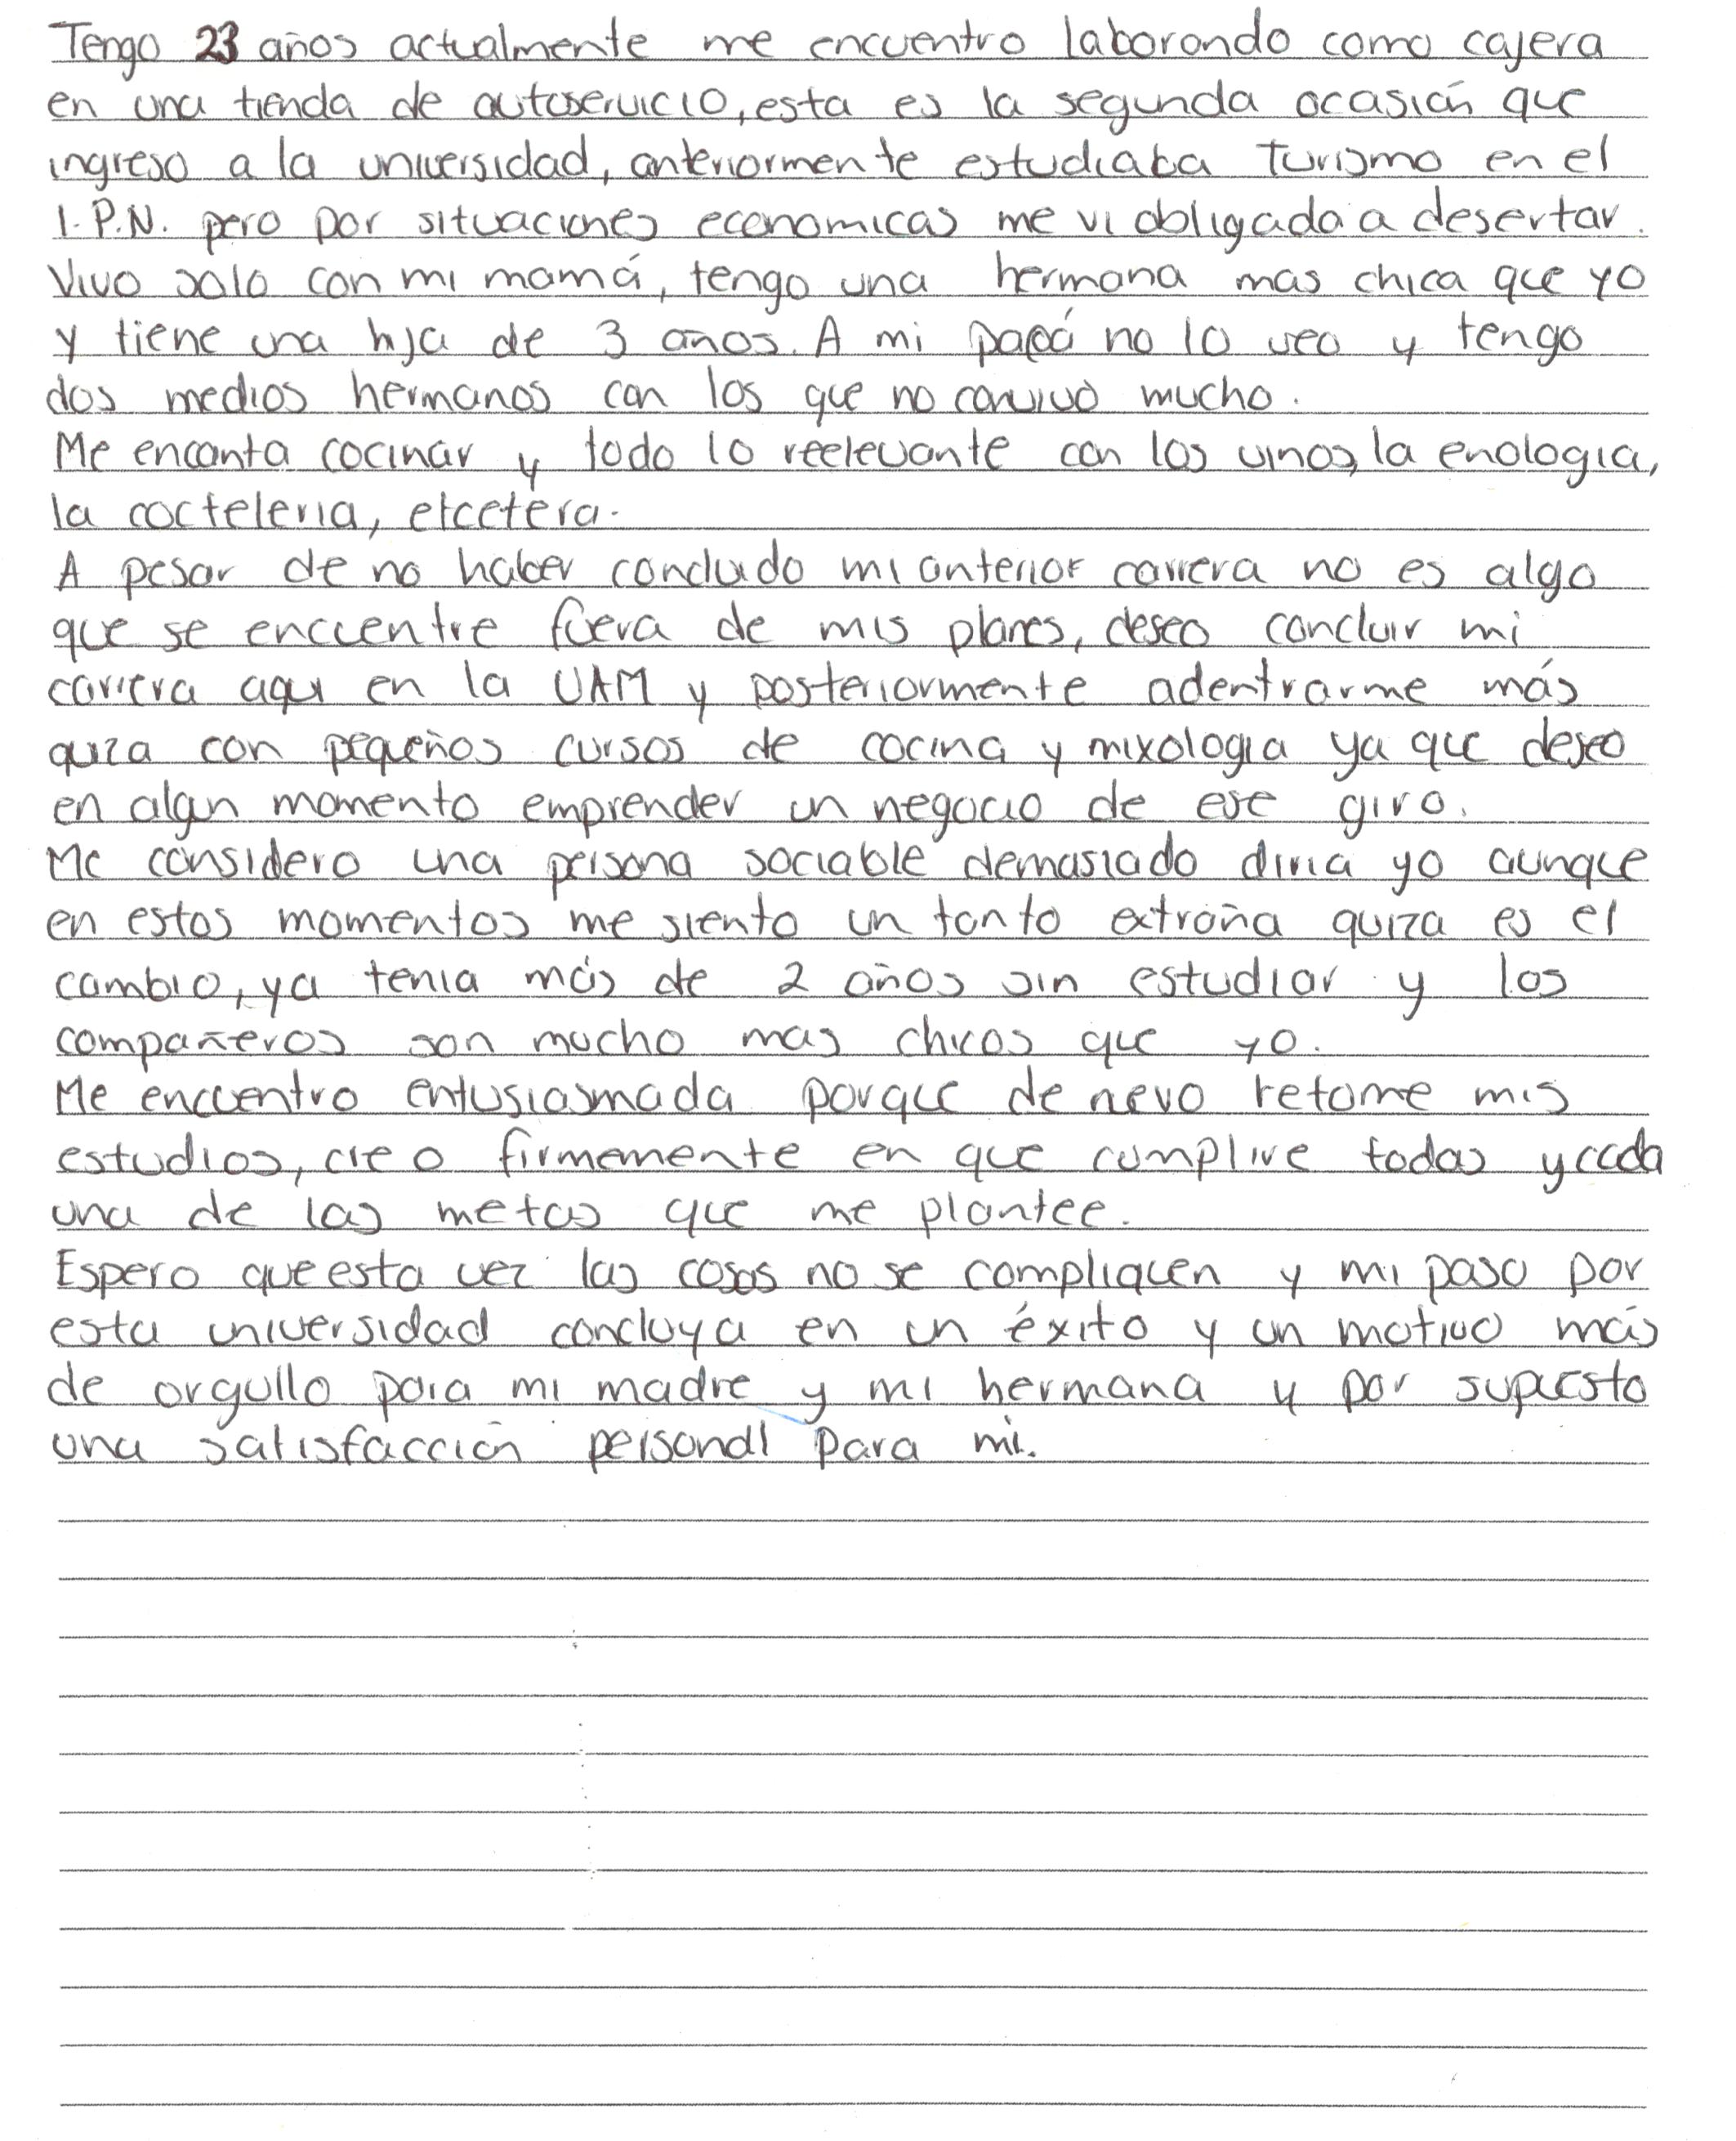 Tengo 23 años actualmente me encuentro laborando como cajera
en una tienda de autoservicio, esta es la segunda ocasión que
ingreso a la universidad, anteriormente estudiaba Turismo en el
I.P.N. pero por situaciones economicas me vi obligada a desertar.
Vivo solo con mi mamá, tengo una hermana mas chica que yo
y tiene una hija de 3 años. A mi papá no lo veo y tengo
dos medios hermanos con los que no convivo mucho.
Me encanta cocinar y todo lo reelevante con los vinos, la enologia,
la cocteleria, etcetera.
A pesar de no haber concluido mi anterior carrera no es algo
que se encuentre fuera de mis planes, deseo concluir mi
carrera aqui en la UAM y posteriormente adentrarme más
quiza con pequeños cursos de cocina y mixologia ya que deseo
en algun momento emprender un negocio de ese giro.
Me considero una persona sociable demasiado diria yo aunque
en estos momentos me siento un tanto extraña quiza es el
cambio, ya tenia más de 2 años sin estudiar y los
compañeros son mucho mas chicos que yo.
Me encuentro entusiasmada porque de nevo retome mis
estudios, creo firmemente en que cumplire todas y cada
una de las metas que me plantee.
Espero que esta vez las cosas no se compliquen y mi paso por
esta universidad concluya en un éxito y un motivo más
de orgullo para mi madre y mi hermana y por supuesto
una satisfacción personal para mi.